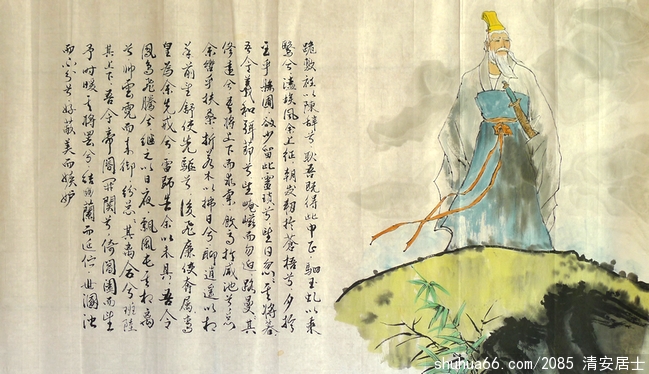 跪敷衽以陳辞兮耿吾既得此中正駟玉虬以乘
鹥兮溘埃風余上征朝发軔於蒼梧兮夕余
至乎縣圃欲少留此靈瑣兮日忽忽其將暮
吾令羲和弭節兮望崦嵫而勿迫路曼曼其
修遠兮吾将上下而求索飲余馬於咸池兮总
余轡乎扶桑折若木以拂日兮聊逍遥以相
羊前望舒使先驅兮後飛廉使奔属鸞
皇為余先戒兮雷師告余以未具吾令
鳳鳥飛腾兮继之以日夜飄風屯其相離
兮帅雲霓而来御紛总总其離合兮斑陸
其上下吾令帝阍開關兮倚阊阖而望
予时暧暧其将罢兮结幽蘭而延伫世溷浊
而不分兮好蔽美而嫉妒
shuhua66.com/2085 清安居士